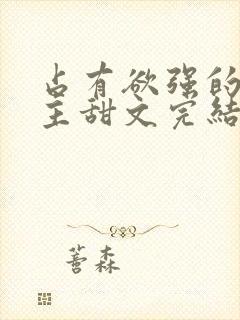 占有欲强的
主甜文完结
蓍森